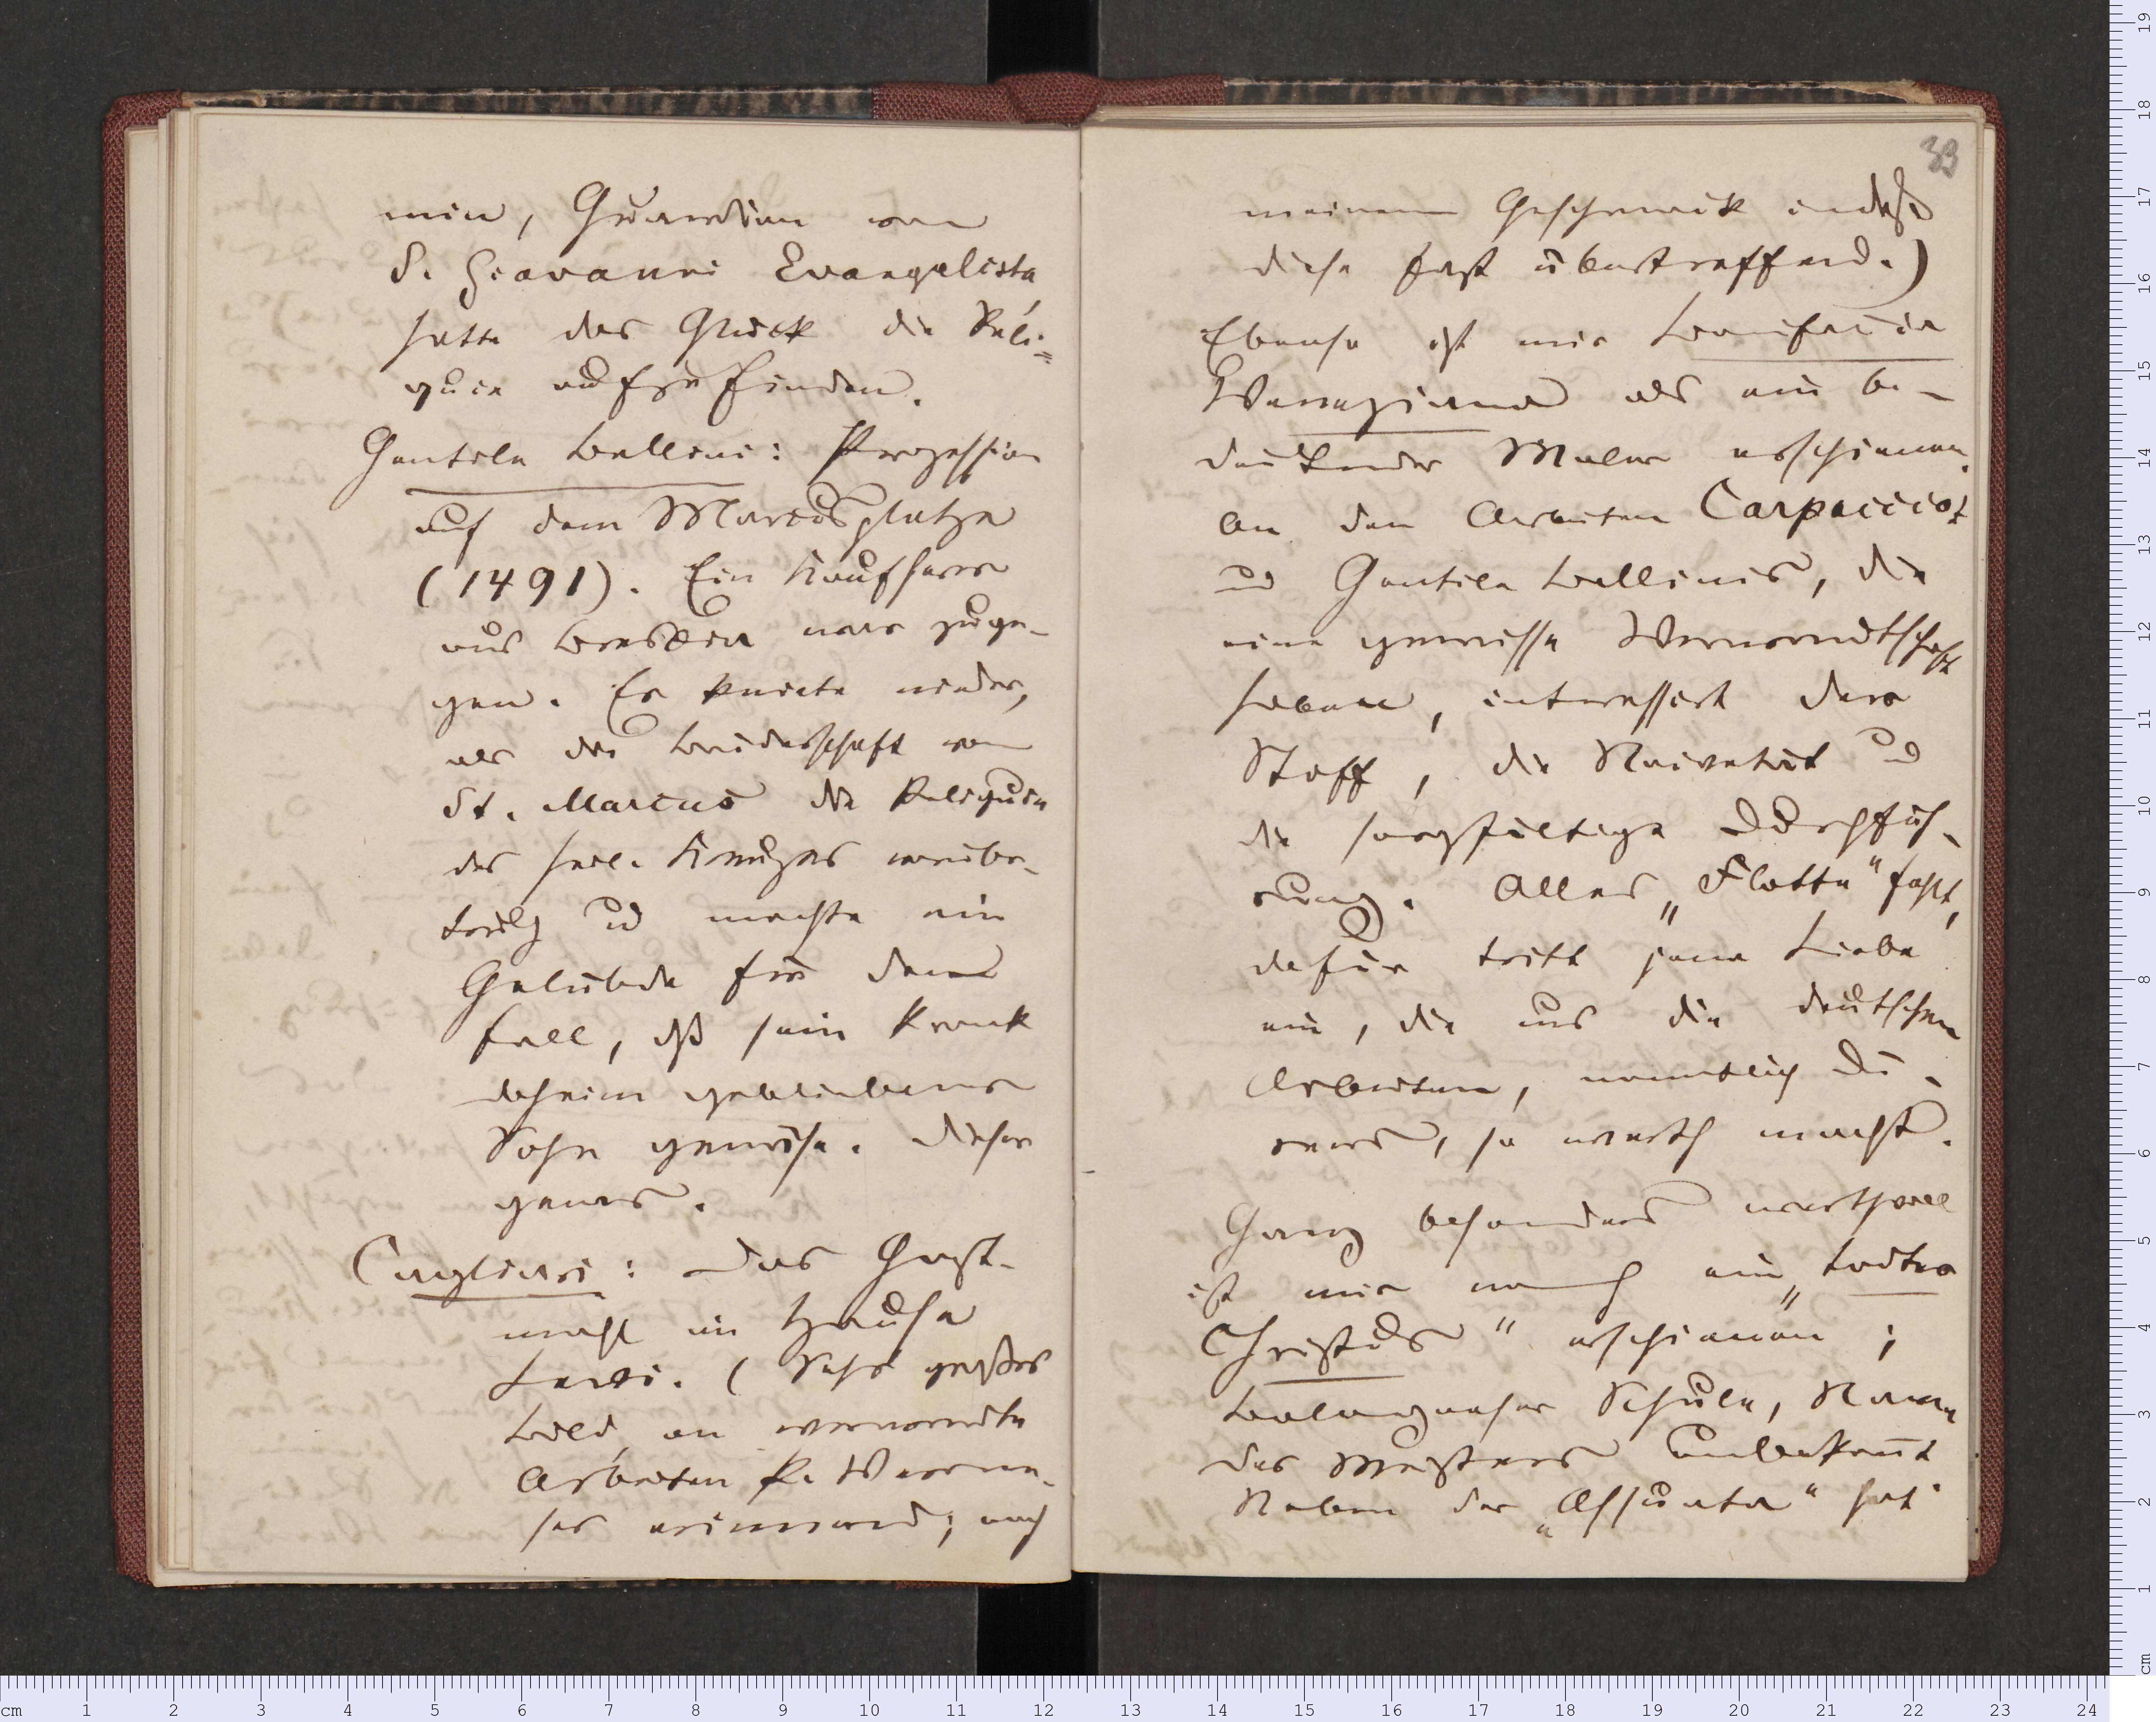 min, Guardian von
S. Giovanni Evangelista
hatte das Glück die Reli=
quie aufzufinden.
Gentile Bellini: Prozession
auf dem Marcusplatze
(1491). Ein Kaufherr
aus Brescia war zuge-
gen. Er kniete nieder,
als die Bruderschaft von
St. Marcus die Reliquie
des heil. Kreuzes vorüber-
trug und machte ein
Gelübde für den
Fall, dß sein krank
daheim gebliebener
Sohn genese. Dieser
genas.
Cagliari: Das Gast-
mahl im Hause
Levi. (Sehr großes
Bild, an verwandte
Arbeiten P. Verone-
ses erinnernd; nach
33
meinem Geschmack indeß
diese fast übertreffend.)
Ebenso ist mir Bonifacio
Veneziano als ein be-
deutender Maler erschienen.
An den Arbeiten Carpaccios
und Gentile Bellinis, die
eine gewisse Verwandtschaft
haben, interessirt der
Stoff, die Naivetät und
die sorgfältige Durchfüh-
rung. Alles „Flotte" fehlt,
dafür tritt jene Liebe
ein, die uns die deutschen
Arbeiten, namentlich Dü-
rers, so werth macht.
Ganz besonders werthvoll
ist mir noch ein „todter
Christus" erschienen;
Bologneser Schule, Name
des Meisters unbekannt
Neben der „Assunta" hat